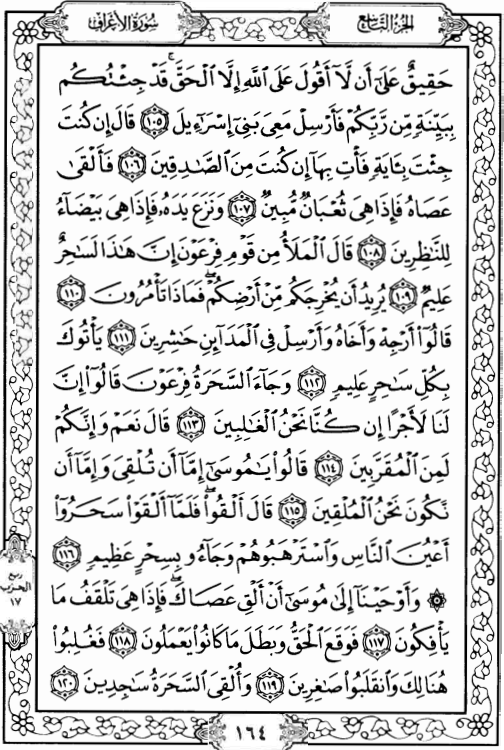 سُورَةُ الأَعْرَافِ
الجُزْءُ التَّاسِعُ
حَقِيقٌ عَلَىٰٓ أَن لَّآ أَقُولَ عَلَى ٱللَّهِ إِلَّا ٱلْحَقَّۚ قَدْ جِئْتُكُم
بِبَيِّنَةٍ مِّن رَّبِّكُمْ فَأَرْسِلْ مَعِىَ بَنِىٓ إِسْرَٰٓءِيلَ ١٠٥ قَالَ إِن كُنتَ
جِئْتَ بِـَٔايَةٍ فَأْتِ بِهَآ إِن كُنتَ مِنَ ٱلصَّـٰدِقِينَ ١٠٦ فَأَلْقَىٰ
عَصَاهُ فَإِذَا هِىَ ثُعْبَانٌ مُّبِينٌ ١٠٧ وَنَزَعَ يَدَهُۥ فَإِذَا هِىَ بَيْضَآءُ
لِلنَّـٰظِرِينَ ١٠٨ قَالَ ٱلْمَلَأُ مِن قَوْمِ فِرْعَوْنَ إِنَّ هَـٰذَا لَسَـٰحِرٌ
عَلِيمٌ ١٠٩ يُرِيدُ أَن يُخْرِجَكُم مِّنْ أَرْضِكُمْۖ فَمَاذَا تَأْمُرُونَ ١١٠
قَالُوٓا۟ أَرْجِهْ وَأَخَاهُ وَأَرْسِلْ فِى ٱلْمَدَآئِنِ حَـٰشِرِينَ ١١١ يَأْتُوكَ
بِكُلِّ سَـٰحِرٍ عَلِيمٍ ١١٢ وَجَآءَ ٱلسَّحَرَةُ فِرْعَوْنَ قَالُوٓا۟ إِنَّ
لَنَا لَأَجْرًا إِن كُنَّا نَحْنُ ٱلْغَـٰلِبِينَ ١١٣ قَالَ نَعَمْ وَإِنَّكُمْ
لَمِنَ ٱلْمُقَرَّبِينَ ١١٤ قَالُوا۟ يَـٰمُوسَىٰٓ إِمَّآ أَن تُلْقِىَ وَإِمَّآ أَن
نَّكُونَ نَحْنُ ٱلْمُلْقِينَ ١١٥ قَالَ أَلْقُوا۟ۖ فَلَمَّآ أَلْقَوْا۟ سَحَرُوٓا۟
أَعْيُنَ ٱلنَّاسِ وَٱسْتَرْهَبُوهُمْ وَجَآءُو بِسِحْرٍ عَظِيمٍ ١١٦
۞ وَأَوْحَيْنَآ إِلَىٰ مُوسَىٰٓ أَنْ أَلْقِ عَصَاكَۖ فَإِذَا هِىَ تَلْقَفُ مَا
يَأْفِكُونَ ١١٧ فَوَقَعَ ٱلْحَقُّ وَبَطَلَ مَا كَانُوا۟ يَعْمَلُونَ ١١٨ فَغُلِبُوا۟
هُنَالِكَ وَٱنقَلَبُوا۟ صَـٰغِرِينَ ١١٩ وَأُلْقِىَ ٱلسَّحَرَةُ سَـٰجِدِينَ ١٢٠
ربع
الحزب
١٧
١٦٤